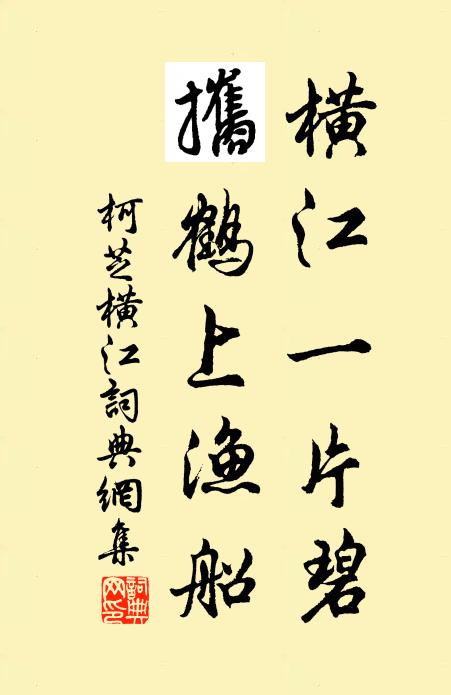 橫江一片碧
攜鶴上漁船
柯芝橫江詞典網集
詞典網印